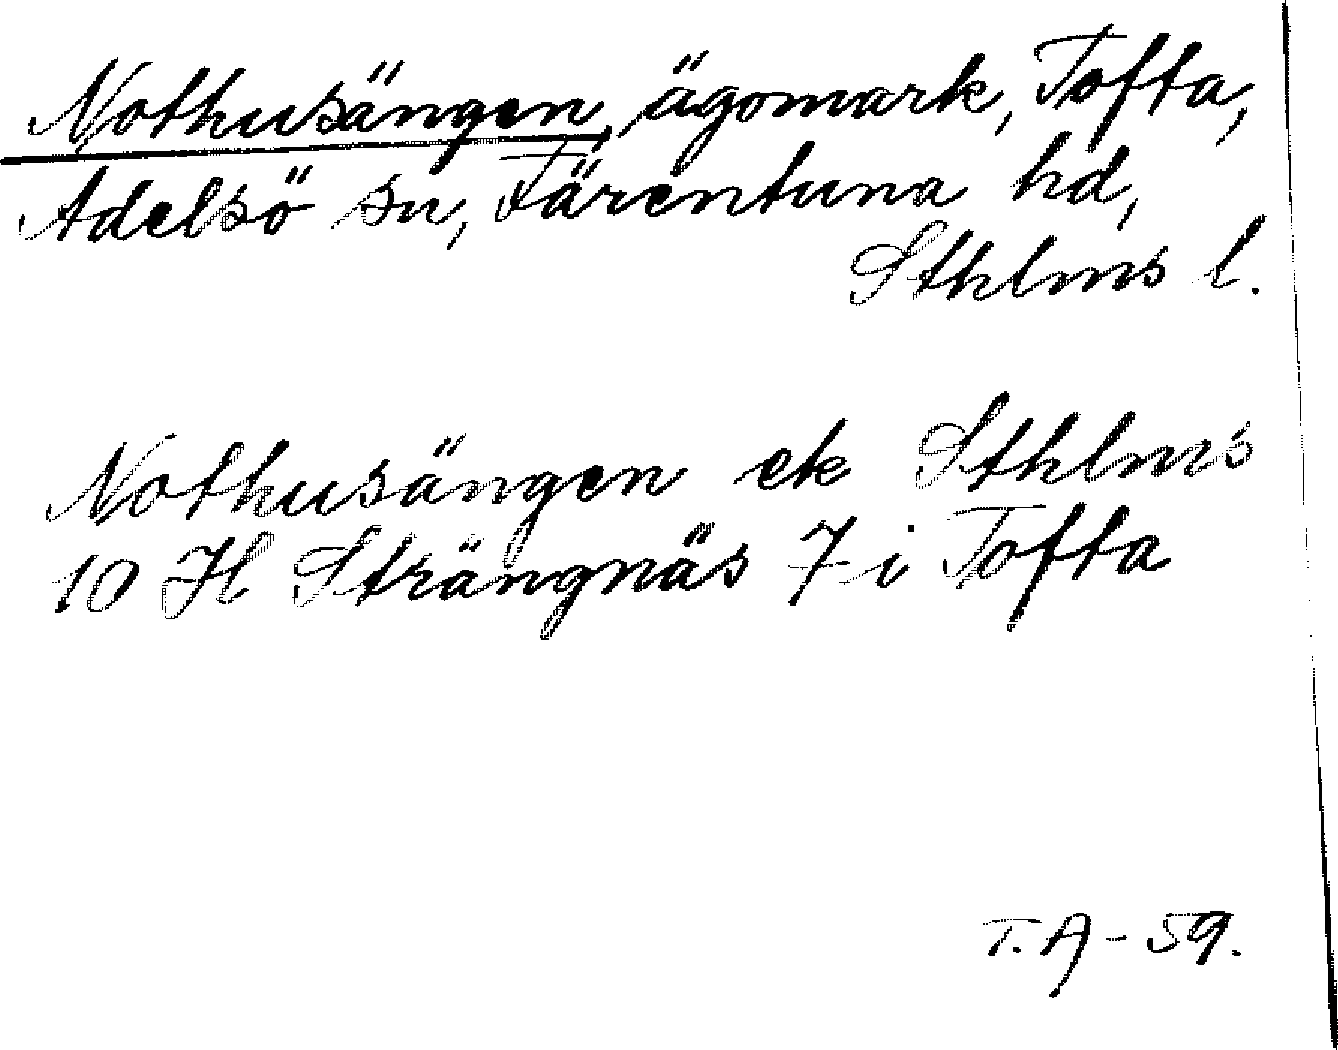 Nothusängen, ägomark, Tofta,
Adelsö sn, Färentuna hd,
Sthlms l.
Nothusängen ek Sthlms
10 H Strängnäs 7 i Tofta
T.A - 59.